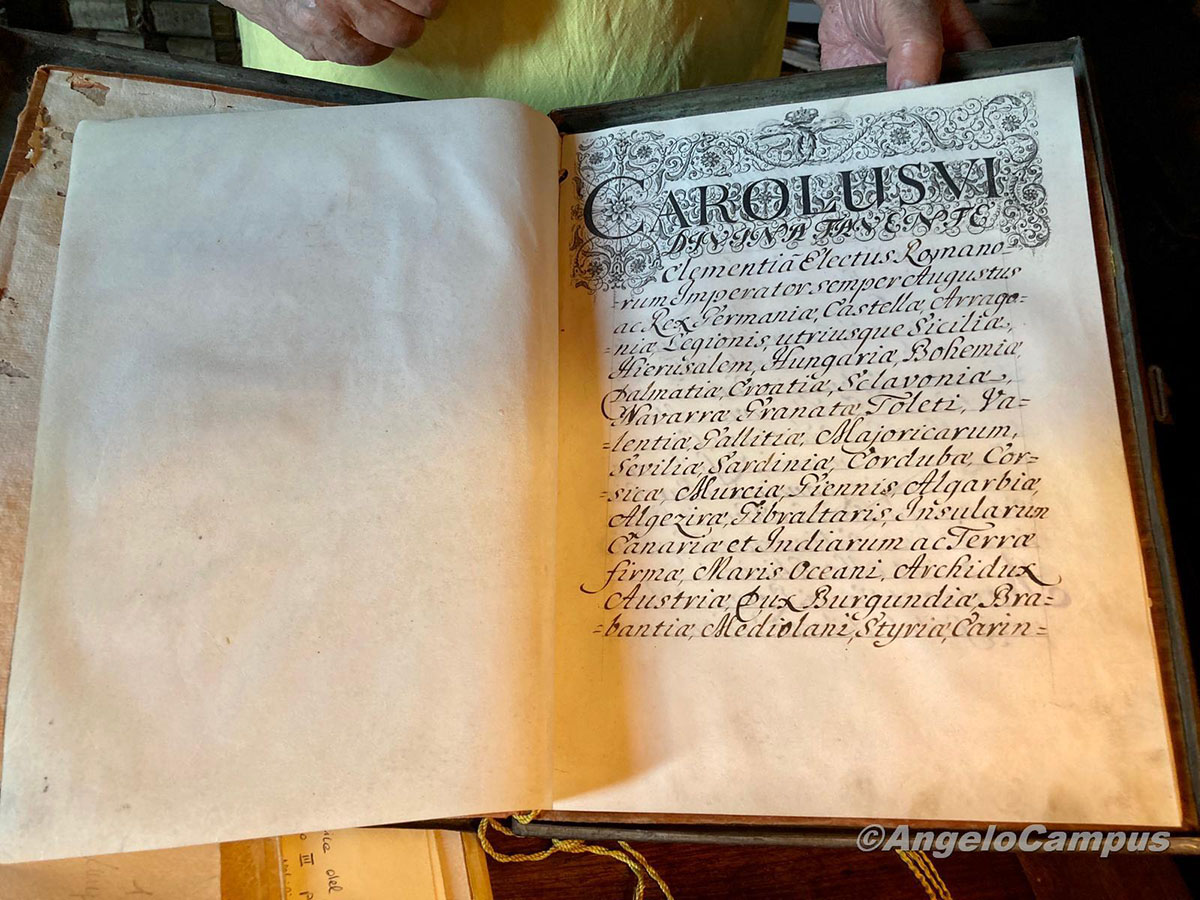 CAROLUS VI
DIVINA FAVENTE
Clementiā Electus Romano-
-rum Imperator semper Augustus
ac Rex Germaniæ, Castellæ, Arrago-
-niæ, Legionis, utriusque Siciliæ,
Hierusalem, Hungariæ, Bohemiæ,
Dalmatiæ, Croatiæ, Sclavoniæ,
Navarræ Granatæ, Toleti, Va-
-lentiæ, Gallitiæ, Majoricarum,
Seviliæ, Sardiniæ, Cordubæ, Cor-
-sicæ, Murciæ, Giennis, Algarbiæ,
Algeziræ, Gibraltaris, Insularum
Canariæ et Indiarum ac Terræ
firmæ, Maris Oceani, Archidux
Austriæ, Dux Burgundiæ, Bra-
-bantiæ, Mediolani, Styriæ, Carin-
del
III P
©AngeloCampus